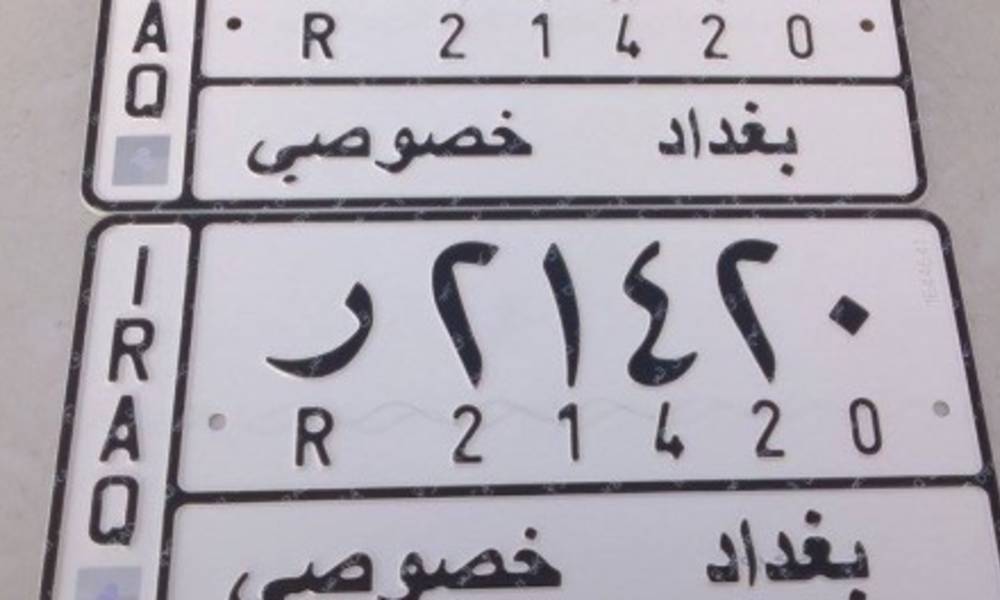 AQ
R 2 1 4 2 0
بغداد خصوصي
IRAQ
ر ٢١٤٢٠
R 2 1 4 2 0
بغداد خصوصي